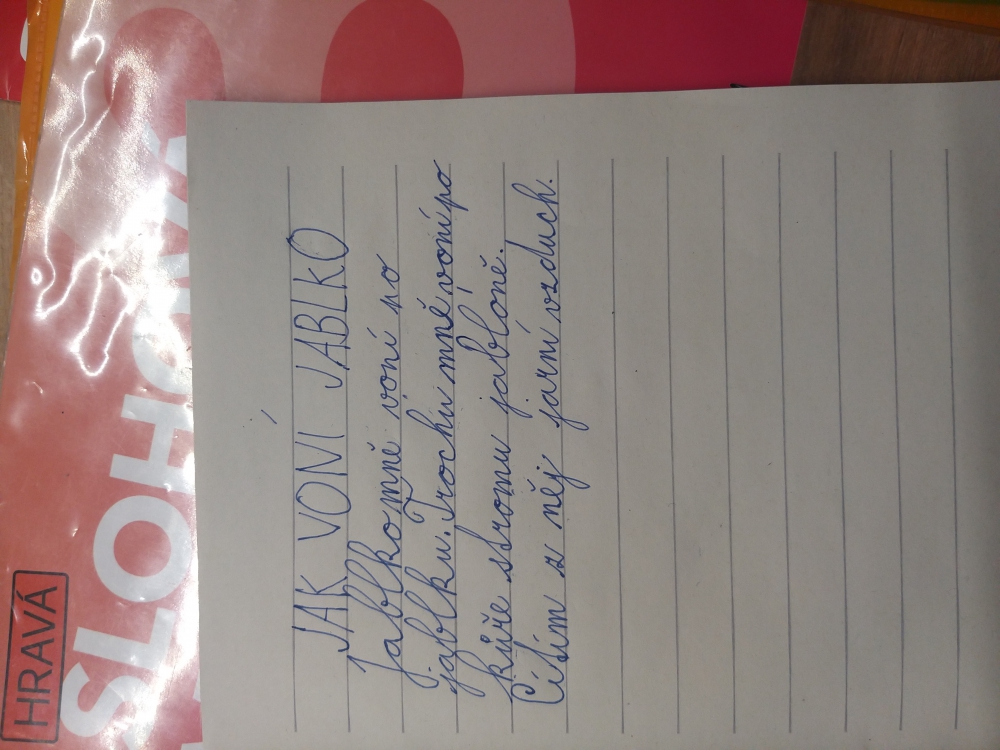 HRAVÁ
SLOHOVÁ
JAK VONÍ JABLKO
Jablko mně voní po
jablku. Trochu mně voní po
kůře stromu jabloně.
Cítím z něj jarní vzduch.